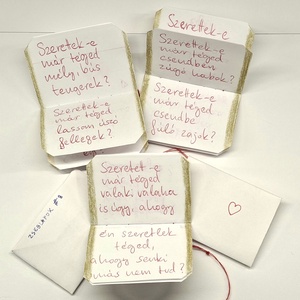 Szeretek-e
már téged
mély, bús
tengerek?
Szeretek-e
már téged
lassan úszó
fellegek?
Szerettek-e
Szerettek-e
már téged
csendben
zúgó habok?
Szerettek-e
már téged
csendbe
fúló zajok?
Szeretet-e
már téged
valaki valaha
is úgy, ahogy
én szeretlek
téged,
ahogy senki
más nem tud?